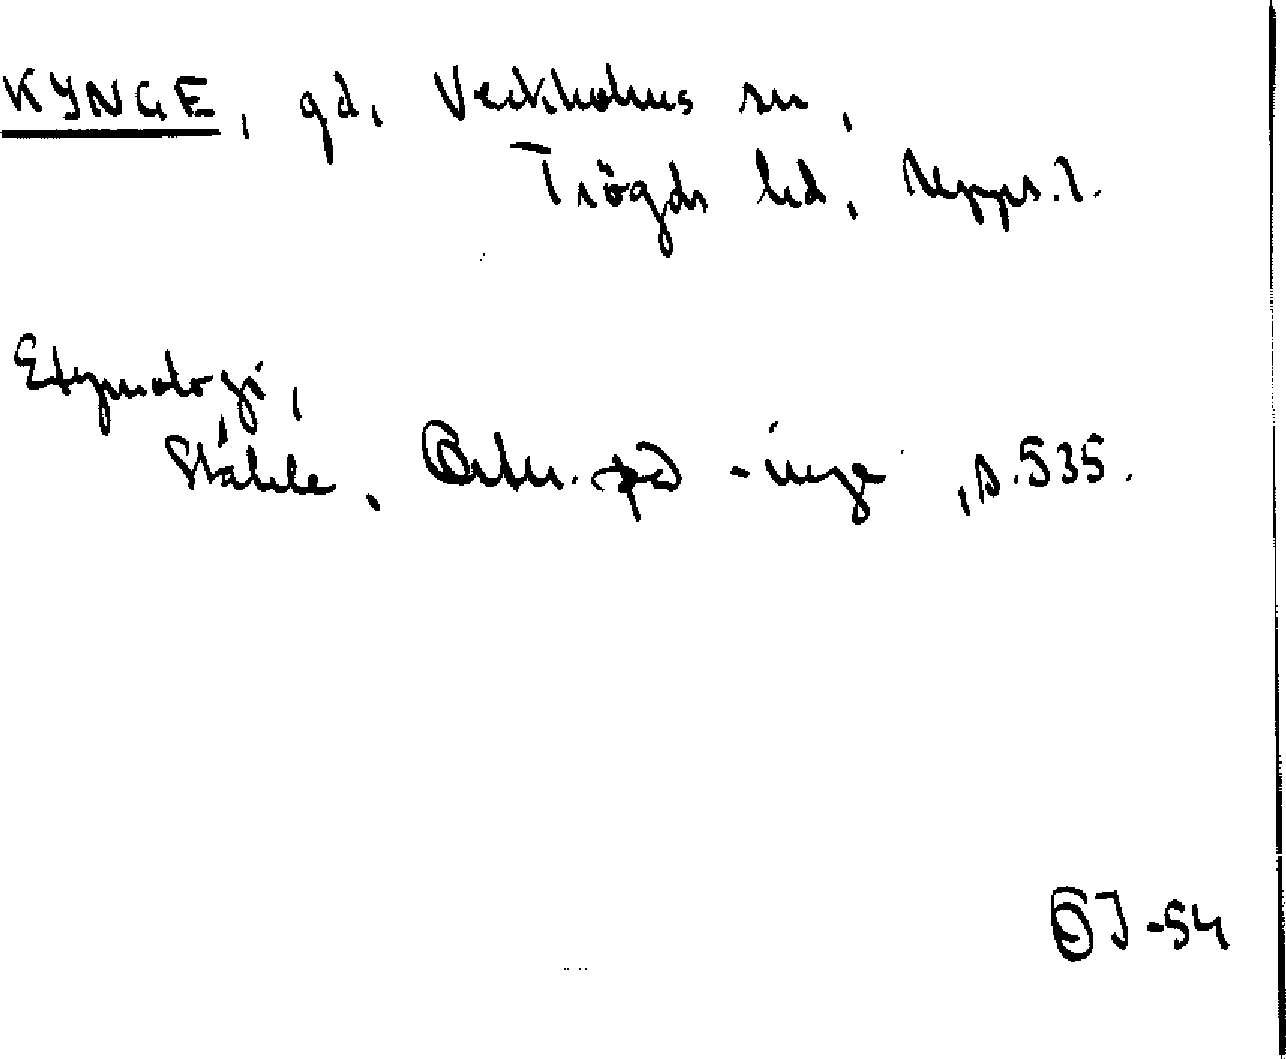 KYNGE, gd, Veckholms sn,
Trögds hd, Upps.l.
Etymologi,
Ståhle, Ortn. på -inge, s.535.
ÖJ-54